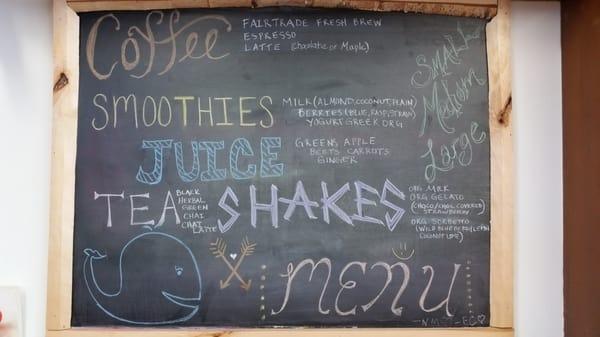 Coffee
FAIRTRADE FRESH BREW
ESPRESSO
LATTE (Chocolate or Maple)
SMALL
Medium
Large
SMOOTHIES
MILK (ALMOND, COCONUT, PLAIN)
BERRIES (BLUE, RASP, STRAW)
YOGURT GREEK ORG
JUICE
GREENS APPLE
BEETS CARROTS
GINGER
TEA
BLACK
HERBAL
GREEN
CHAI
CHAI
LATTE
SHAKES
ORG MILK
ORG GELATO
(CHOCO/CHOC COVERED
STRAWBERRY)
ORG SORBETTO
(WILD BLUEBERRY, LEMON
COCONUT LIME)
MENU